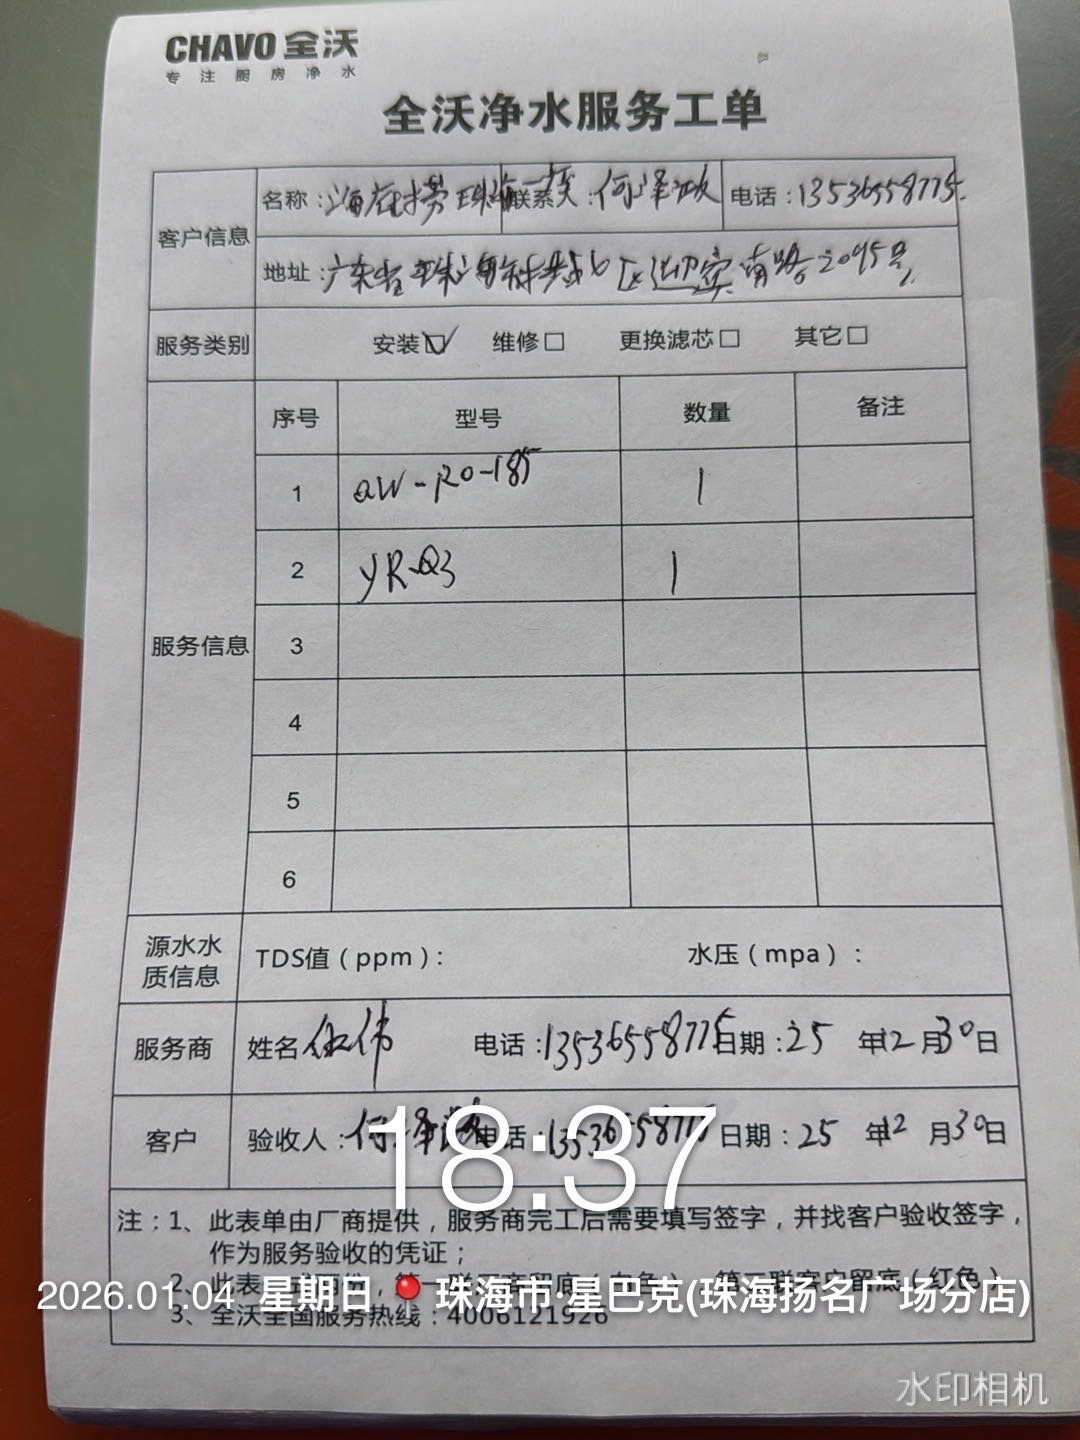 CHAVO 全沃
专注厨房净水
全沃净水服务工单
客户信息 名称：海底捞珠海一店 联系人：何泽波 电话：13536558775
地址：广东省珠海市 区迎宾南路2095号
服务类别 安装☑ 维修□ 更换滤芯□ 其它□
服务信息 序号 型号 数量 备注
1 QW-RO-185 1
2 YR-Q3 1
3
4
5
6
源水水质信息 TDS值（ppm）： 水压（mpa）：
服务商 姓名 伍伟 电话：13536558775 日期：25 年12月30日
客户 验收人：何泽波 电话：13536558775 日期：25 年12月30日
18:37
注：1、此表单由厂商提供，服务商完工后需要填写签字，并找客户验收签字，
作为服务验收的凭证；
2、此表 第一联 第二联客户留底（红色）
2026.01.04 星期日 珠海市·星巴克(珠海扬名广场分店)
3、全沃全国服务热线：4006121926
水印相机